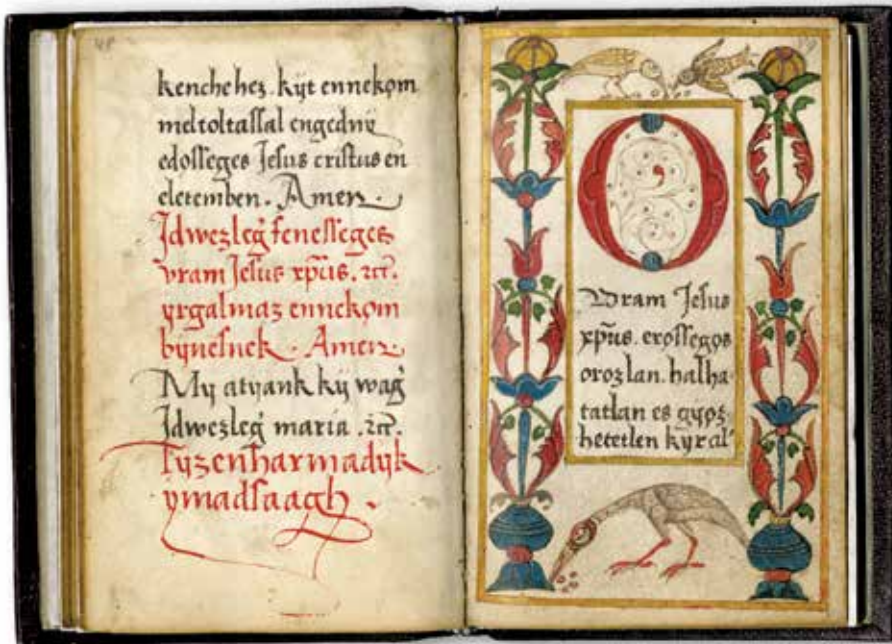 48
kenchehez. kyt ennekom
meltoltassal engedny
edosseges Jesus cristus en
eletemben. Amen.
Jdwezleg fenesseges
vram Jesus xpus. zcc.
yrgalmaz ennekom
bynesnek. Amen.
My atyank ky wag
Jdwezleg maria. zcc.
Tyzenharmadyk
ymadsaagh.
O
Vram Jesus
xpus. erossegos
orozlan. halha
tatlan es gyoz
hetetlen kyral